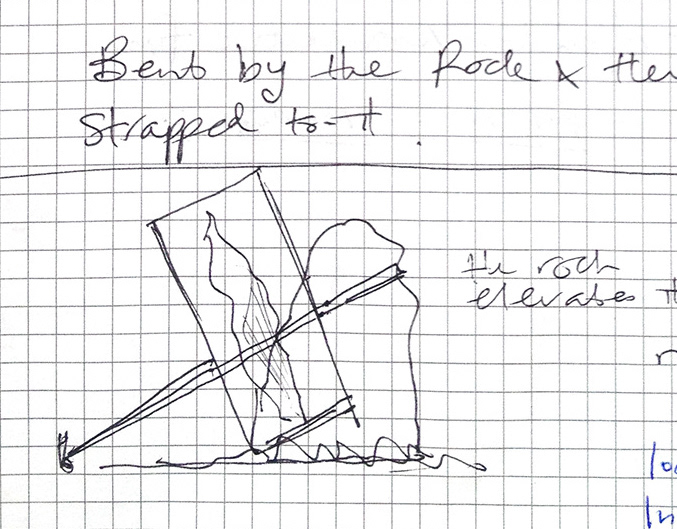 Bent by the Rock & the
Strapped to it.
the rock
elevates